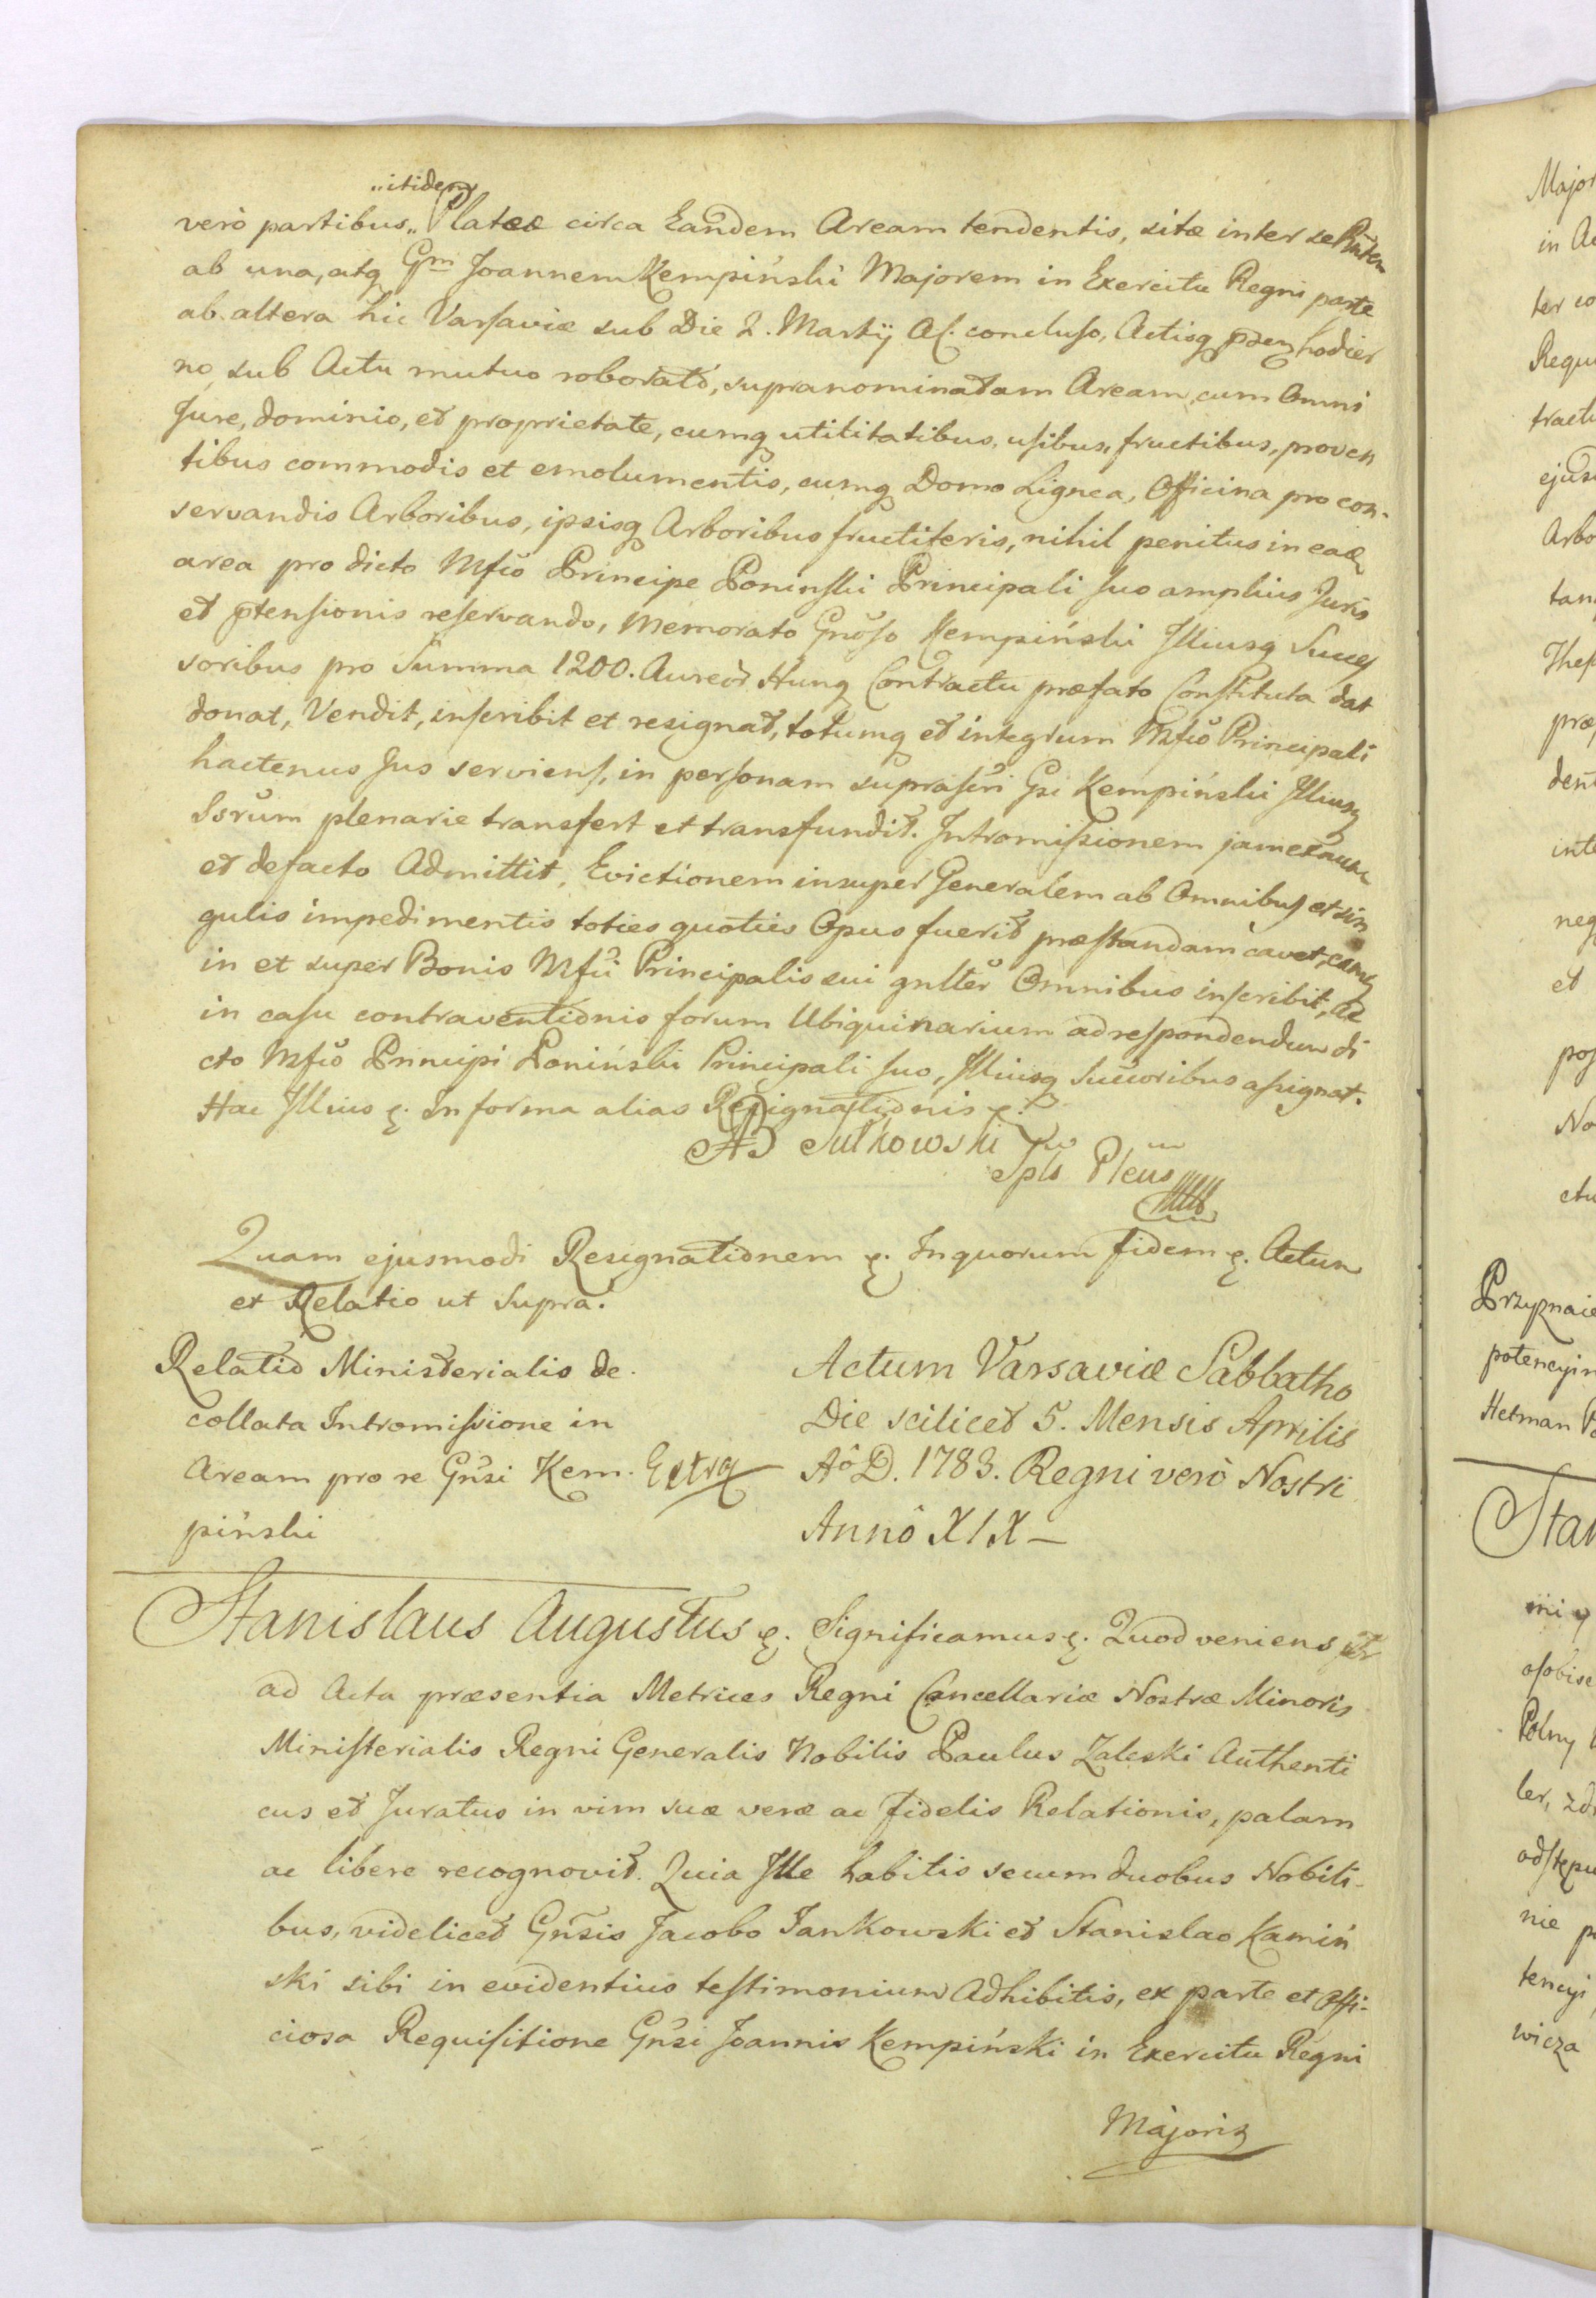 „itidem
verò partibus„ Plateæ circa Eandem Aream tendentis, sitæ inter se
ab una, atq Gm Joannem Kempiński Majorem in Exercitu Regni parte
ab altera hic Varsaviæ sub Die 2. Martÿ conclusо, Actisq hodier
no sub Actu mutuo roborato, supranominatam Aream, cum Omni
Jure, dominio, et proprietate, cumq utilitatibus, usibus, fructibus, proven
tibus commodis et emolumentis, cumq Domo Lignea, Officina pro con-
servandis Arboribus, ipsisq Arboribus fructiferis, nihil penitus in
area pro dicto Mfco Principe Poninski Principali suo amplius Juris
et ptensionis reservando, Memorato Gnoso Kempiński Illiusq Succes
soribus pro Summa 1200. Aureor Hung Contractu præfato Constituta dat
donat, Vendit, inscribit et resignat, totumq et integrum Mfco Principali
hactenus Jus serviens, in personam suprascri Gsi Kempiński Illiusq
Ssrum plenarie transfert et transfundit. Intromissionem jam
et defacto Admittit, Evictionem insuper Generalem ab Omnibus et sin
gulis impedimentis toties quoties Opus fuerit præstandam cavet,
in et super Bonis Mfci Principalis sui gnlter Omnibus inscribit, Ac
in casu contraventionis forum Ubiquinarium ad respondendum di
cto Mfco Principi Poninski Principali suo, Illiusq Succoribus assignat.
Hac Illius ę. In forma alias Resignationis ę.
AB Sułkowski
Spls Pleus
Quam ejusmodi Resignationem ę. In quorum fidem ę. Actum
et Relatio ut Supra.
Relatio Ministerialis de
collata Intromissione in
Aream pro re Gnsi Kem.
piński
Extra
Actum Varsaviæ Sabbatho
Die scilicet 5. Mensis Aprilis
Aô D. 1783. Regni verò Nostri
Annô XIX –
Stanislaus Augustus ę. Significamus ę. Quod veniens
ad Acta præsentia Metrices Regni Cancellariæ Nostræ Minoris
Ministerialis Regni Generalis Nobilis Paulus Zaleski Authenti
cus et Juratus in vim suæ veræ ac fidelis Relationis, palam
ac libere recognovit. Quia Ille habitis secum duobus Nobili-
bus, videlicet Gnsis Jacobo Jankowski et Stanislao Kamiń
ski sibi in evidentius testimonium Adhibitis, ex parte et Offi-
ciosa Requisitione Gnsi Joannis Kempiński in Exercitu Regni
Majoris